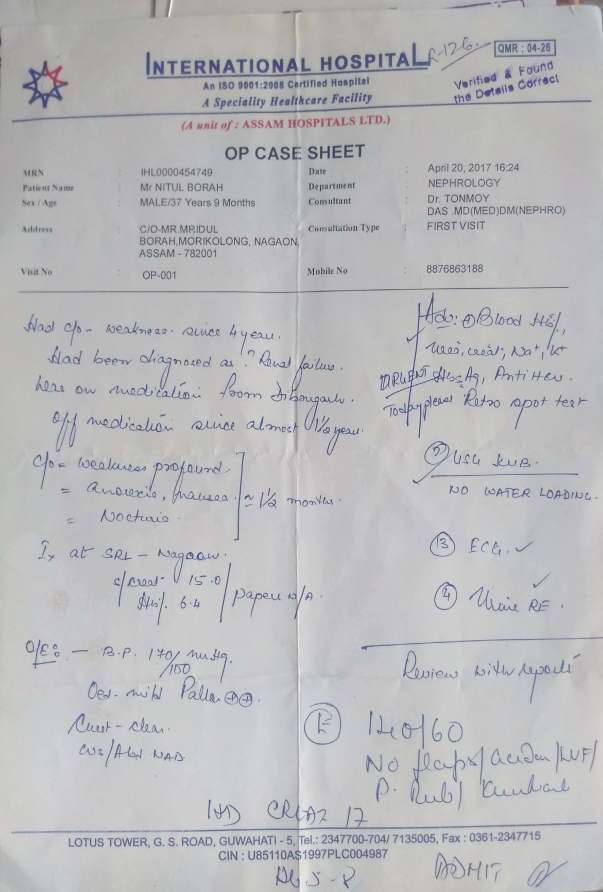 INTERNATIONAL HOSPITAL
R-126
QMR : 04-26
An ISO 9001:2008 Certified Hospital
A Speciality Healthcare Facility
Verified & Found
the Details Correct
(A unit of : ASSAM HOSPITALS LTD.)
OP CASE SHEET
MRN : IHL0000454749
Date : April 20, 2017 16:24
Patient Name : Mr NITUL BORAH
Department : NEPHROLOGY
Sex / Age : MALE/37 Years 9 Months
Consultant : Dr. TONMOY
DAS .MD(MED)DM(NEPHRO)
Address : C/O-MR.MRIDUL
BORAH,MORIKOLONG, NAGAON,
ASSAM - 782001
Consultation Type : FIRST VISIT
Visit No : OP-001
Mobile No : 8876863188
Had c/o - weakness since 4 years.
Had been diagnosed as ? Renal failure.
was on medication from Dibrugarh.
off medication since almost 1 1/2 years.
c/o = weakness profound
= Anorexia, nausea ≈ 1 1/2 months.
= Nocturia.
Ix at SRL - Nagaon.
s/creat 15.0
Hb% 6.4
papers N/A.
O/E: - B.P. 170/100 mmHg.
Oed. mild Pallor ++.
Chest - clear.
CVS/Abd NAD
Adv: ① Blood Hb%,
Urea, creat, Na+, K+
URGENT HBsAg, Anti HCV.
Today please Retro spot test
② USG KUB.
NO WATER LOADING.
③ ECG.
④ Urine RE.
Review with reports
140/60
No flaps/acidosis/LVF/
P. Rub/
17
LOTUS TOWER, G. S. ROAD, GUWAHATI - 5, Tel.: 2347700-704/ 7135005, Fax : 0361-2347715
CIN : U85110AS1997PLC004987
ADMIT